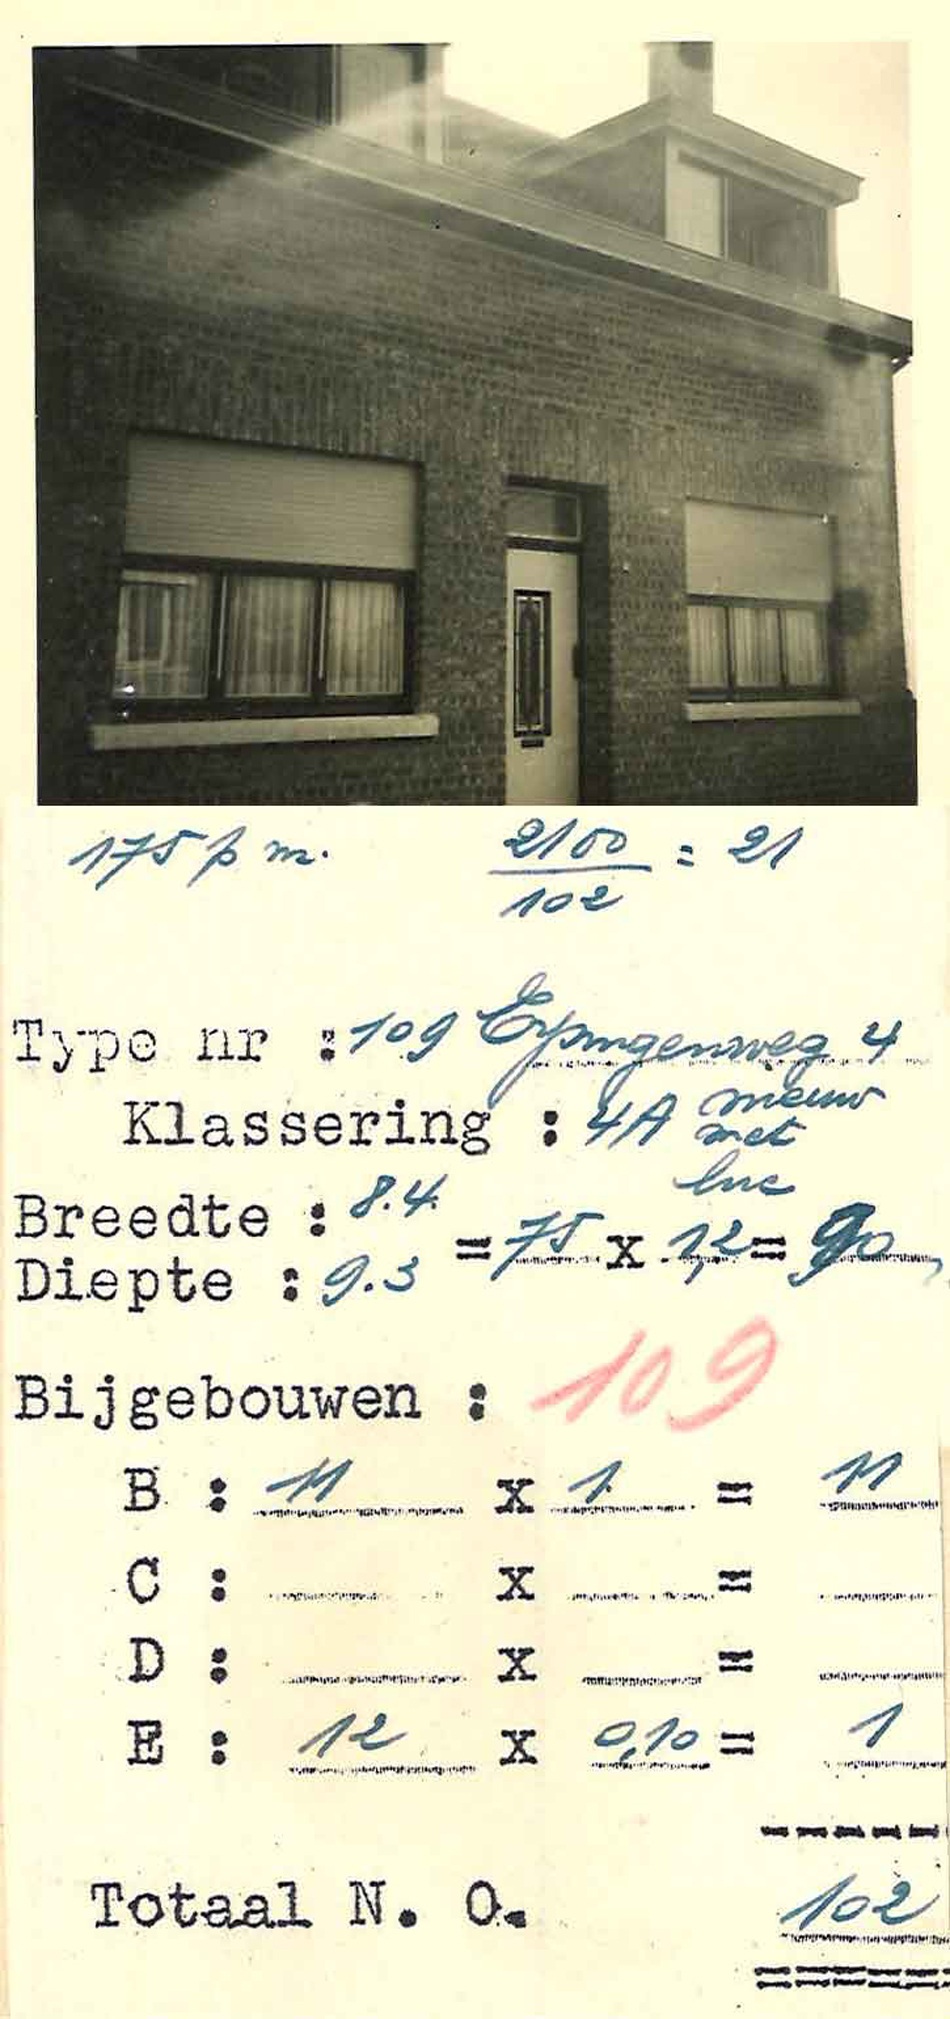 175 p m. 2100 / 102 = 21
Type nr : 109 Erpingenweg 4
Klassering : 4A nieuw
met
luc
Breedte : 8.4
= 75 x 1,2 = 90
Diepte : 9.3
Bijgebouwen : 109
B : 11 x 1 = 11
C : x =
D : x =
E : 12 x 0,10 = 1
Totaal N. O. 102